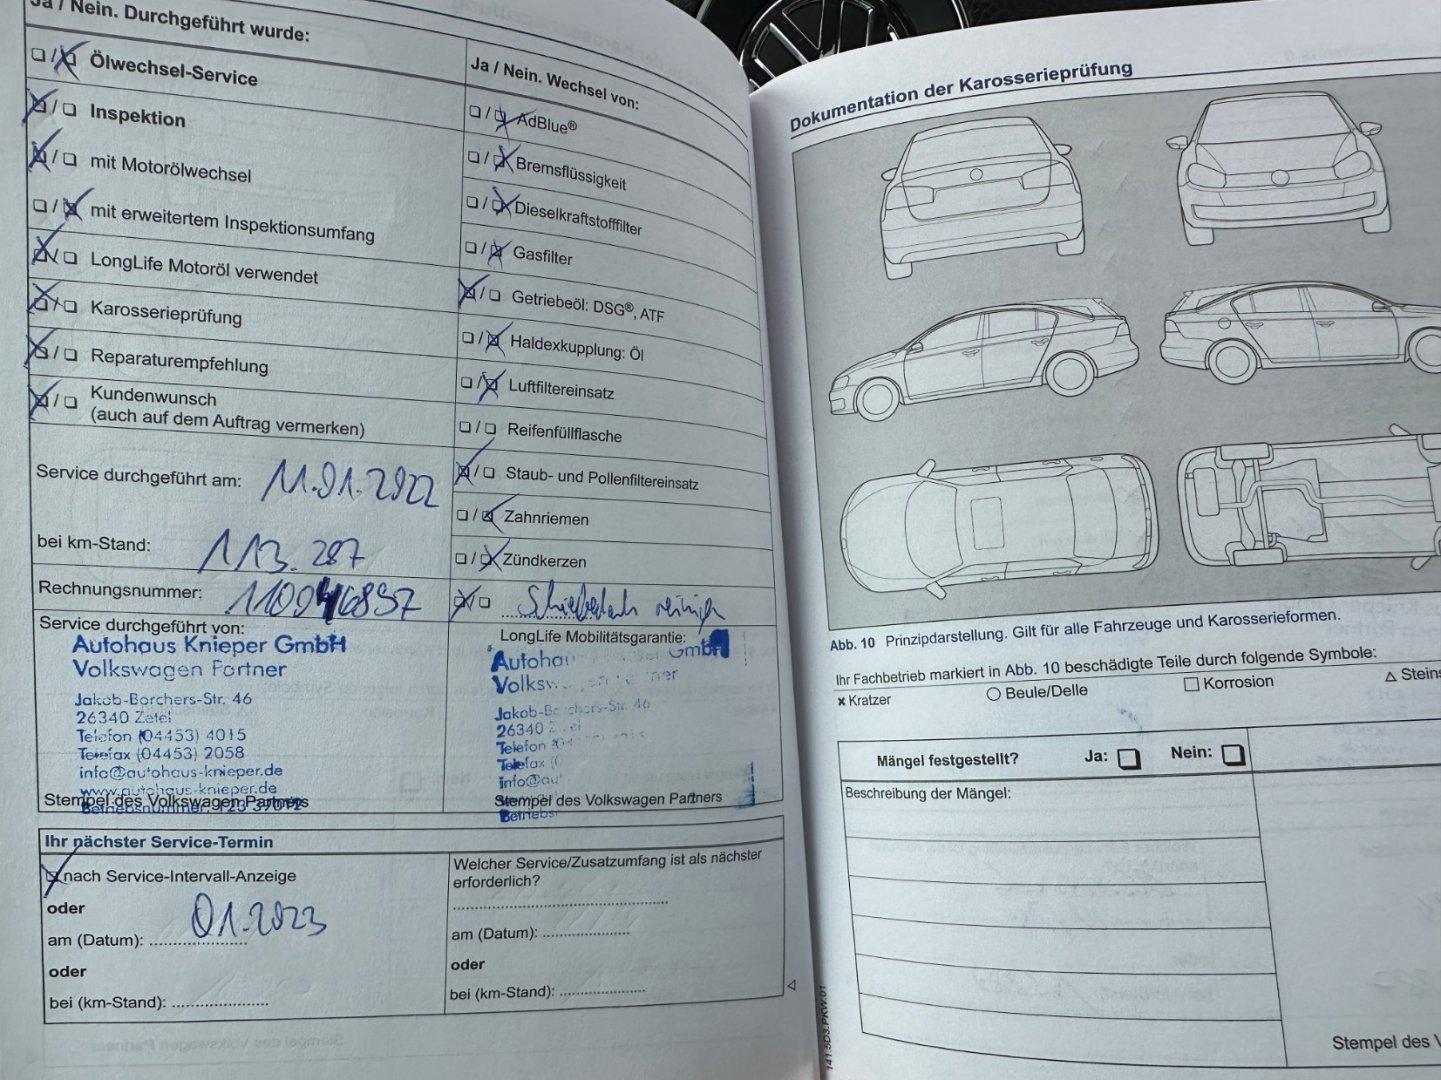 Ja / Nein. Durchgeführt wurde:
Ölwechsel-Service
Inspektion
mit Motorölwechsel
mit erweitertem Inspektionsumfang
LongLife Motoröl verwendet
Karosserieprüfung
Reparaturempfehlung
Kundenwunsch
(auch auf dem Auftrag vermerken)
Service durchgeführt am: 11.01.2022
bei km-Stand: 113.287
Rechnungsnummer: 110946897
Service durchgeführt von:
Autohaus Knieper GmbH
Volkswagen Partner
Jakob-Borchers-Str. 46
26340 Zetel
Telefon (04453) 4015
Telefax (04453) 2058
info@autohaus-knieper.de
www.autohaus-knieper.de
Stempel des Volkswagen Partners
Betriebsnummer:
Ja / Nein. Wechsel von:
AdBlue®
Bremsflüssigkeit
Dieselkraftstofffilter
Gasfilter
Getriebeöl: DSG®, ATF
Haldexkupplung: Öl
Luftfiltereinsatz
Reifenfüllflasche
Staub- und Pollenfiltereinsatz
Zahnriemen
Zündkerzen
Schiebedach reinigen
LongLife Mobilitätsgarantie:
Autohau GmbH
Volksw
Jakob-Bo chers-Str. 46
26340
Telefon
Telefax
info@aut
Stempel des Volkswagen Partners
Betriebs
Ihr nächster Service-Termin
nach Service-Intervall-Anzeige
oder
01.2023
am (Datum):
oder
bei (km-Stand):
Welcher Service/Zusatzumfang ist als nächster
erforderlich?
am (Datum):
oder
bei (km-Stand):
Dokumentation der Karosserieprüfung
Abb. 10 Prinzipdarstellung. Gilt für alle Fahrzeuge und Karosserieformen.
Ihr Fachbetrieb markiert in Abb. 10 beschädigte Teile durch folgende Symbole:
× Kratzer ○ Beule/Delle □ Korrosion △ Steins
Mängel festgestellt? Ja: Nein:
Beschreibung der Mängel:
Stempel des V
141.5D3.PKW.01